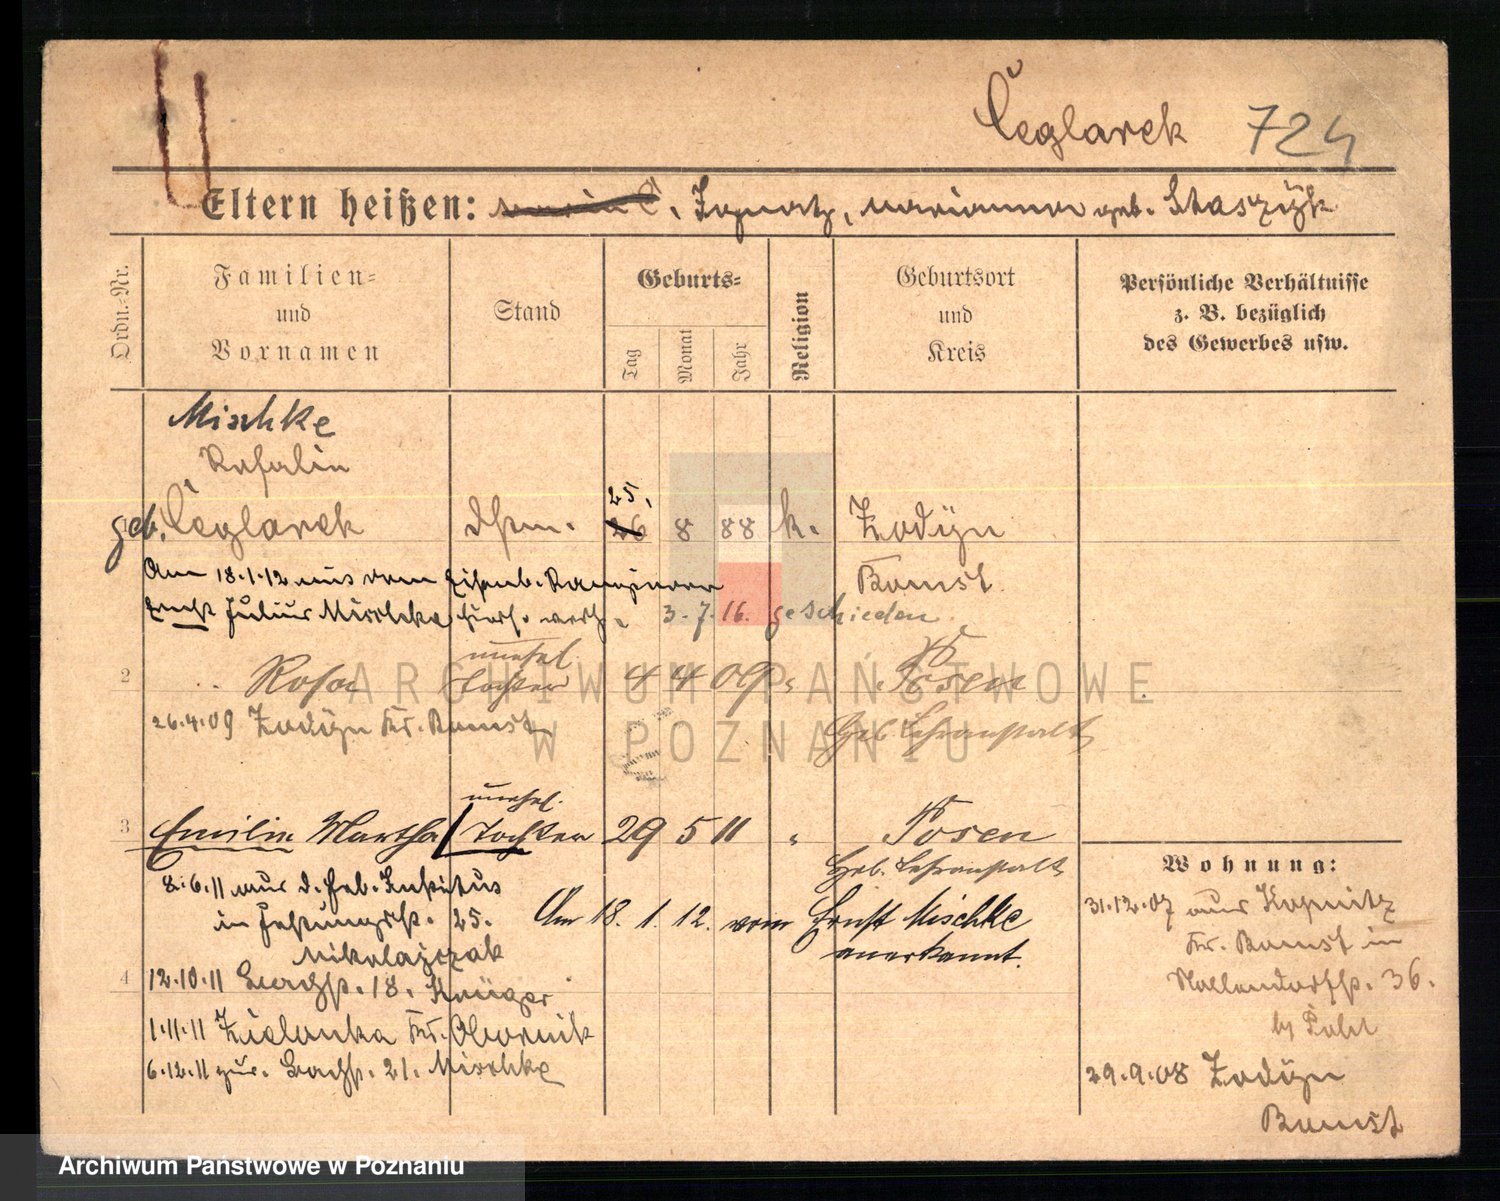 Čeglarek 724
Eltern heißen: Ignatz, Marianna geb. Staszÿk
Ordn.-Nr.
Familien-
und
Vornamen
Stand
Geburts-
Tag
Monat
Jahr
Religion
Geburtsort
und
Kreis
Persönliche Verhältnisse
z. B. bezüglich
des Gewerbes usw.
Mischke
Rosalie
geb. Čeglarek Dstm. 25. 26 8 88 k. Zodÿn
Bomst
Am 18.1.12 aus dem Eisenb.
Ernst Julius Mischke 3.7.16. geschieden
2 Rosa unehel. Tochter 4 4 09 " Posen
26.4.09 Zodÿn Kr. Bomst
Geb. Lehranstalt
3 Emilie Martha unehel. Tochter 29 5 11 " Posen
Geb. Lehranstalt
8.6.11 aus d. Heb. Institus
in 25.
Mikolajczak
Am 18. 1. 12. vom Ernst Mischke
anerkannt.
4
12.10.11 18. Krüger
1.11.11 Zielonka Kr. Obornik
6.12.11 zur. 21. Mischke
Wohnung:
31.12.07 aus Kopnitz
Kr. Bomst in
Nollendorfstr. 36.
29.9.08 Zodÿn
Bomst
ARCHIWUM PAŃSTWOWE
W POZNANIU
Archiwum Państwowe w Poznaniu